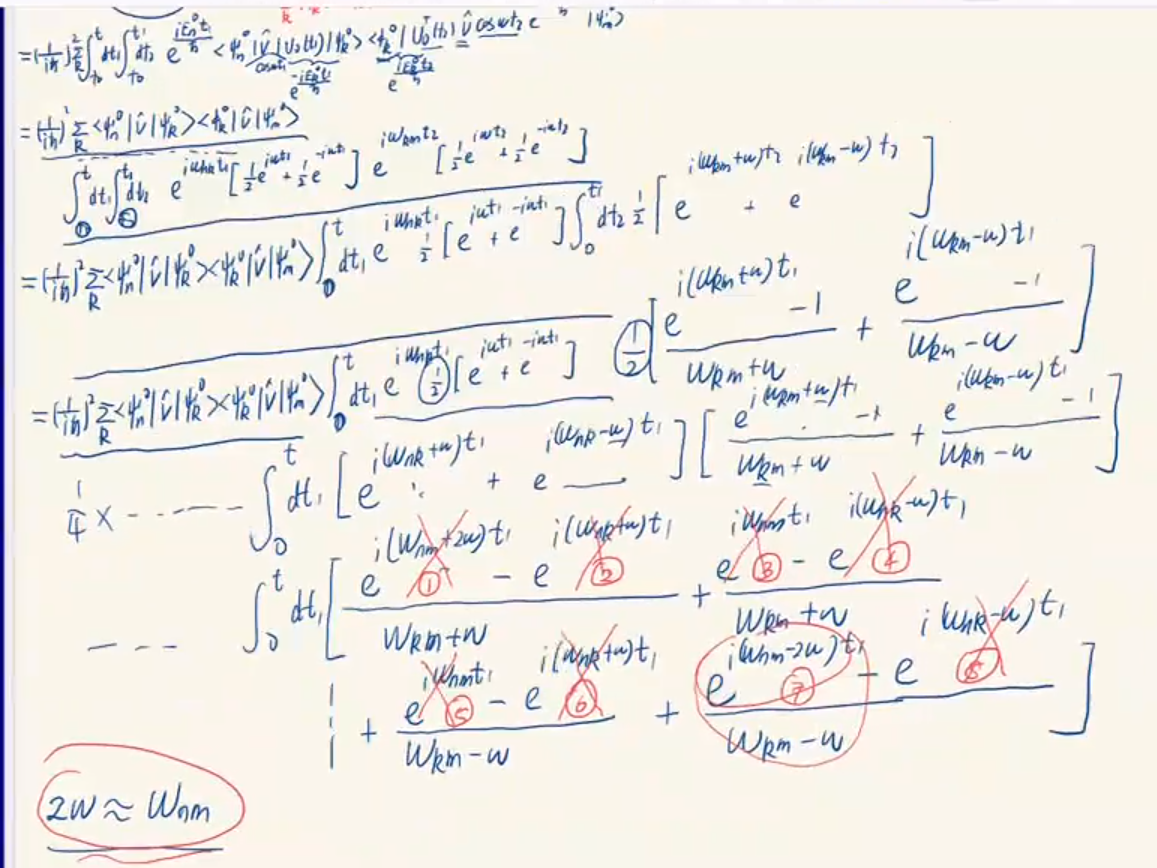 = (1/iħ)² Σ_k ∫_{t₀}^{t} dt₁ ∫_{t₀}^{t₁} dt₂ e^{iE_n⁰t₁/ħ} <ψ_n⁰|V̂|U₀(t₁)|ψ_k⁰> <ψ_k⁰|U₀†(t₂) V̂ cosωt₂ e |ψ_m⁰>
cosωt₁ e^{-iE_k⁰t₁/ħ} e^{iE_k⁰t₂/ħ}
= (1/iħ)² Σ_k <ψ_n⁰|V̂|ψ_k⁰><ψ_k⁰|V̂|ψ_m⁰>
∫_0^t dt₁ ∫_0^{t₁} dt₂ e^{iω_{nk}t₁} [½e^{iωt₁} + ½e^{-iωt₁}] e^{iω_{km}t₂} [½e^{iωt₂} + ½e^{-iωt₂}]
= (1/iħ)² Σ_k <ψ_n⁰|V̂|ψ_k⁰><ψ_k⁰|V̂|ψ_m⁰> ∫_0^t dt₁ e^{iω_{nk}t₁} ½ [e^{iωt₁} + e^{-iωt₁}] ∫_0^{t₁} dt₂ ½ [e^{i(ω_{km}+ω)t₂} + e^{i(ω_{km}-ω)t₂}]
= (1/iħ)² Σ_k <ψ_n⁰|V̂|ψ_k⁰><ψ_k⁰|V̂|ψ_m⁰> ∫_0^t dt₁ e^{iω_{nk}t₁} ½ [e^{iωt₁} + e^{-iωt₁}] ½ [(e^{i(ω_{km}+ω)t₁} - 1)/(ω_{km}+ω) + (e^{i(ω_{km}-ω)t₁} - 1)/(ω_{km}-ω)]
¼ × ------ ∫_0^t dt₁ [e^{i(ω_{nk}+ω)t₁} + e^{i(ω_{nk}-ω)t₁}] [(e^{i(ω_{km}+ω)t₁} - 1)/(ω_{km}+ω) + (e^{i(ω_{km}-ω)t₁} - 1)/(ω_{km}-ω)]
---- ∫_0^t dt₁ [(e^{i(ω_{nm}+2ω)t₁} ① - e^{i(ω_{nk}+ω)t₁} ②)/(ω_{km}+ω) + (e^{iω_{nm}t₁} ③ - e^{i(ω_{nk}-ω)t₁} ④)/(ω_{km}+ω)
+ (e^{iω_{nm}t₁} ⑤ - e^{i(ω_{nk}+ω)t₁} ⑥)/(ω_{km}-ω) + (e^{i(ω_{nm}-2ω)t₁} ⑦ - e^{i(ω_{nk}-ω)t₁} ⑧)/(ω_{km}-ω)]
2ω ≈ ω_{nm}